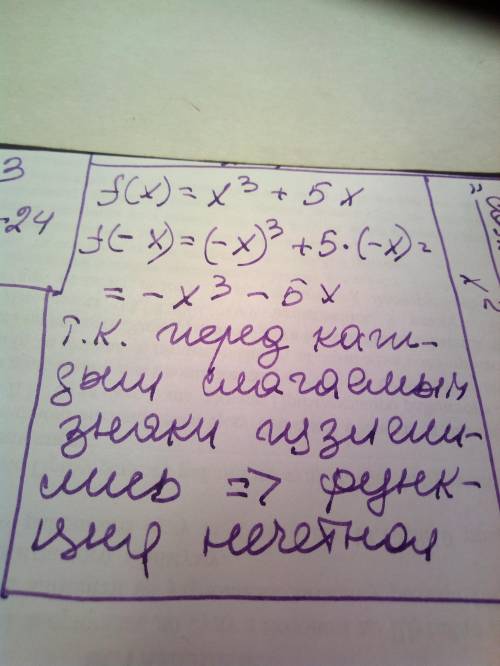 3
-24
f(x) = x³ + 5x
f(-x) = (-x)³ + 5·(-x) =
= -x³ - 5x
т.к. перед каж-
дым слагаемым
знаки измени-
лись => функ-
ция нечетная